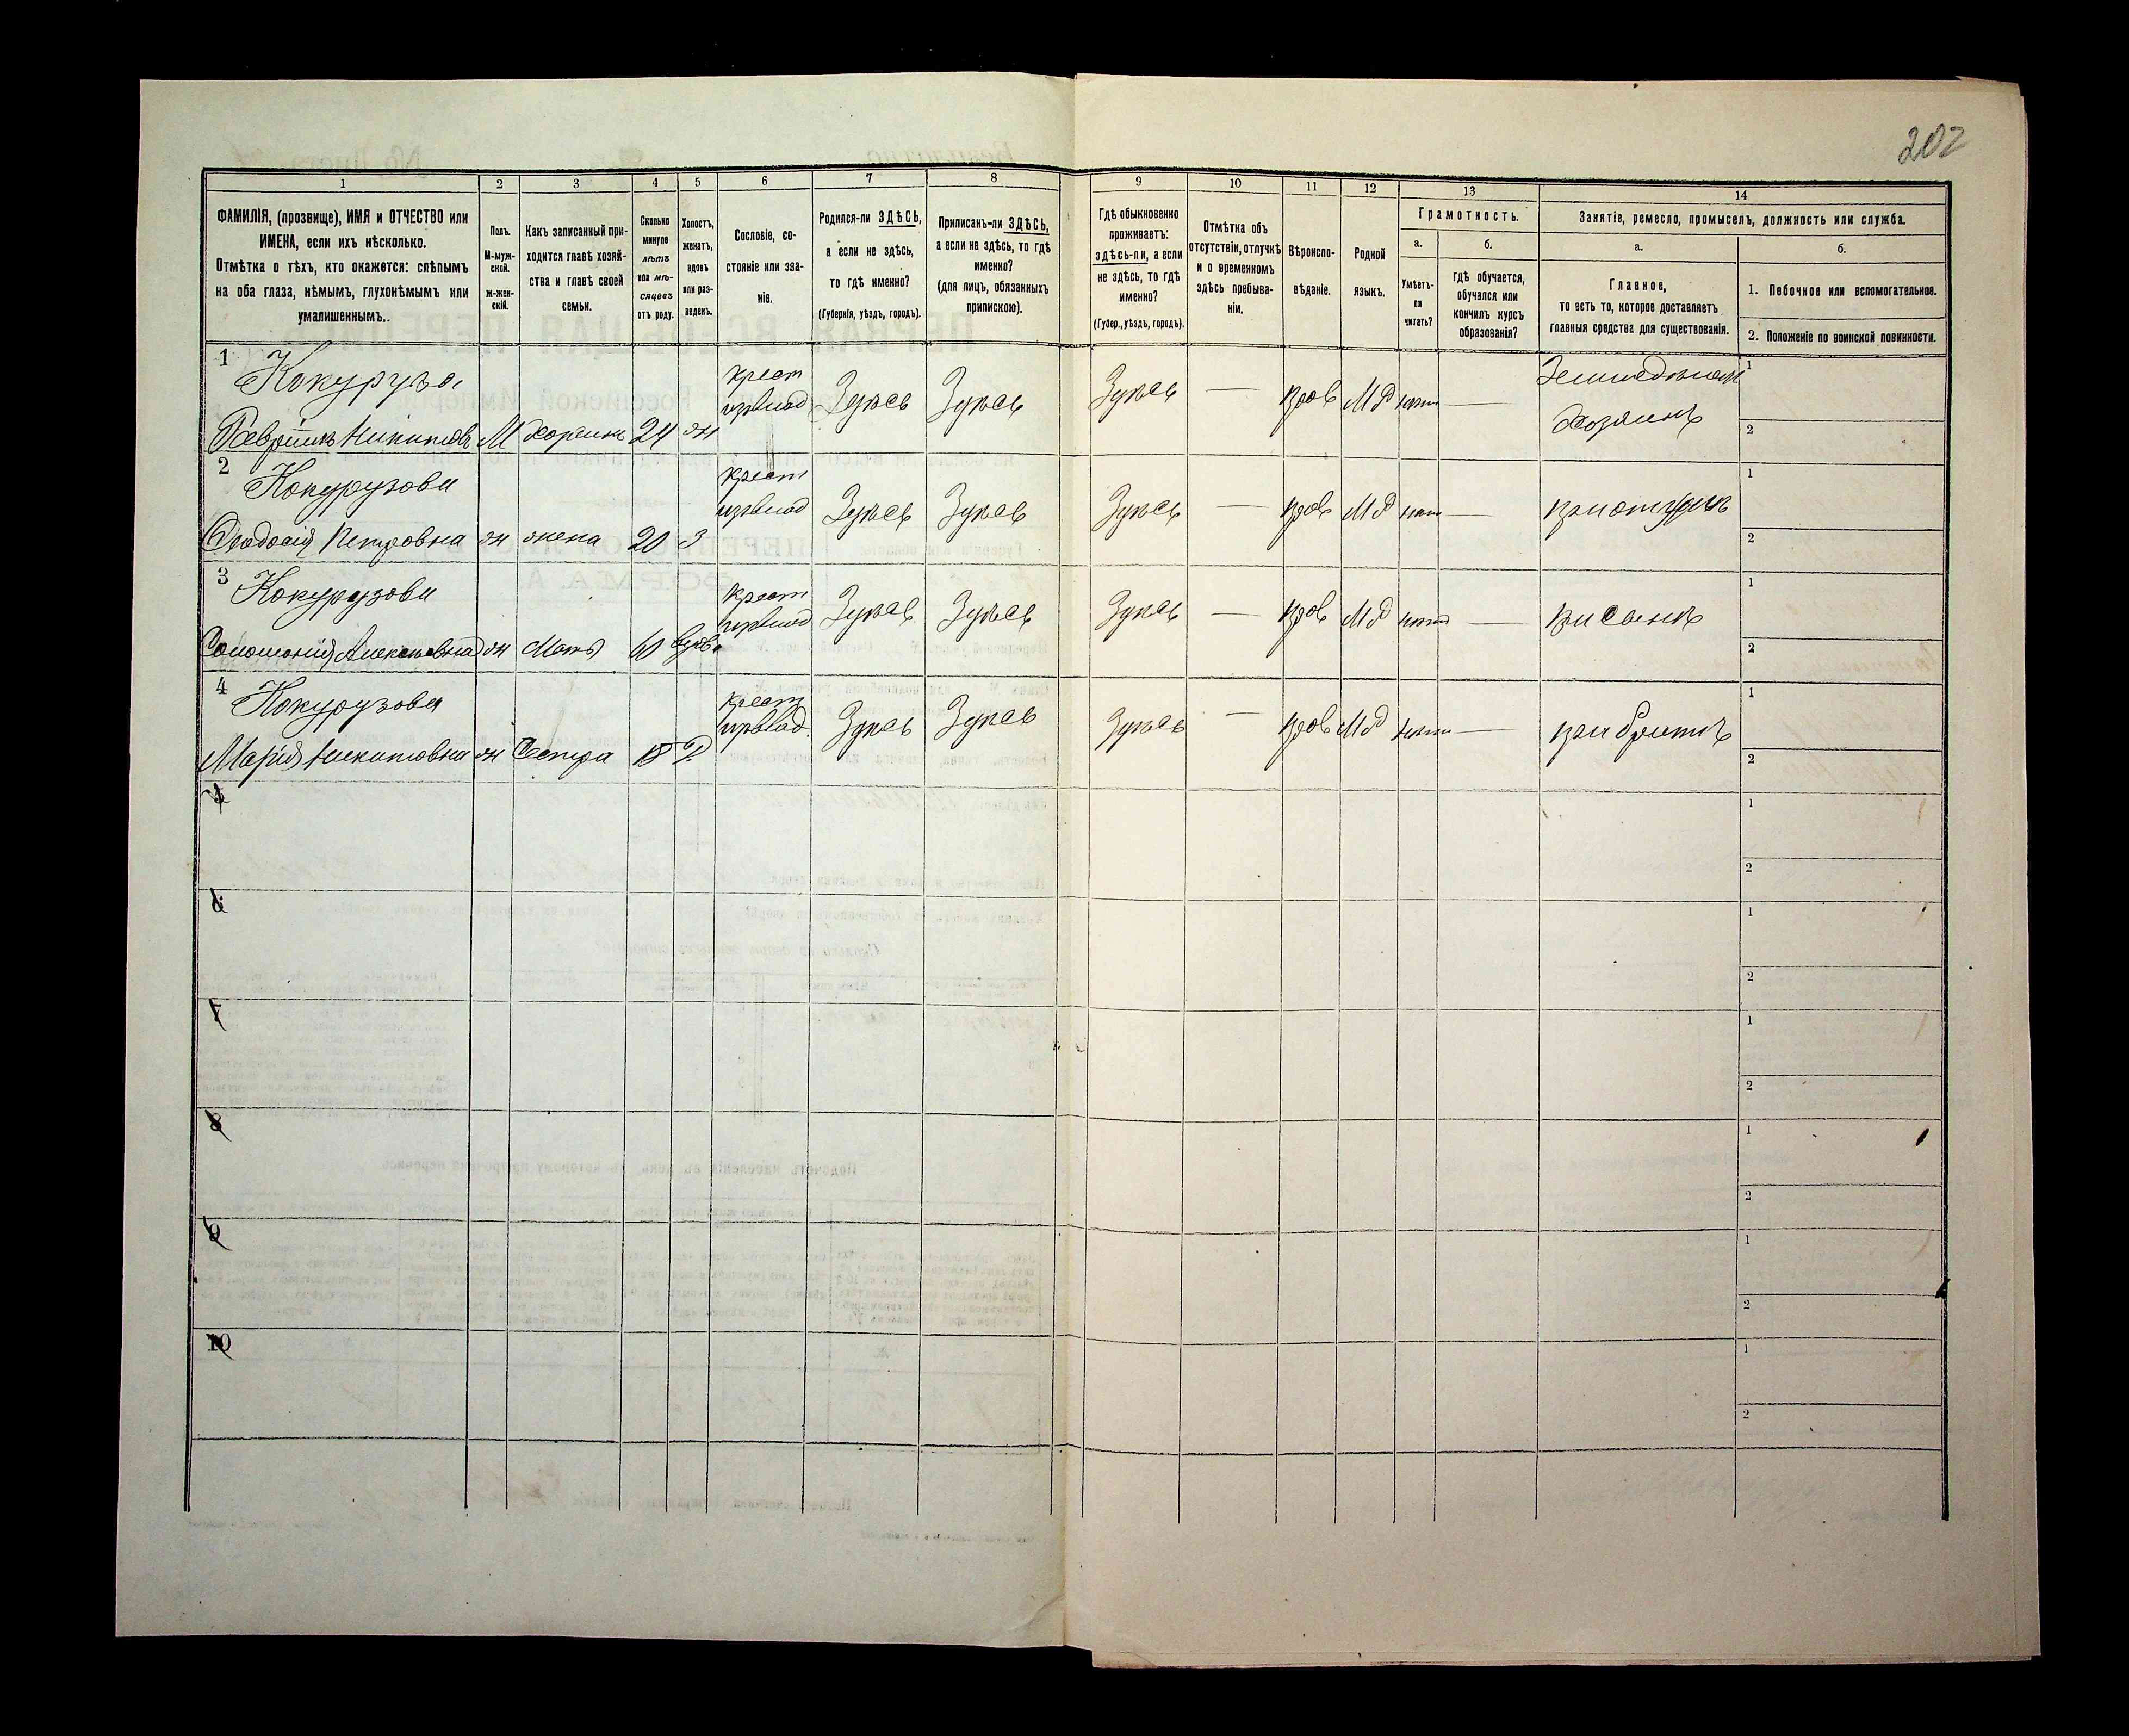 202
1 2 3 4 5 6 7 8 9 10 11 12 13 14
ФАМИЛІЯ, (прозвище), ИМЯ и ОТЧЕСТВО или
ИМЕНА, если ихъ нѣсколько.
Отмѣтка о тѣхъ, кто окажется: слѣпымъ
на оба глаза, нѣмымъ, глухонѣмымъ или
умалишеннымъ..
Полъ.
М-муж-
ской.
ж-жен-
скій.
Какъ записанный при-
ходится главѣ хозяй-
ства и главѣ своей
семьи.
Сколько
минуло
лѣтъ
или мѣ-
сяцевъ
отъ роду.
Холостъ,
женатъ,
вдовъ
или раз-
веденъ.
Сословіе, со-
стояніе или зва-
ніе.
Родился-ли ЗДѢСЬ,
а если не здѣсь,
то гдѣ именно?
(Губернія, уѣздъ, городъ).
Приписанъ-ли ЗДѢСЬ,
а если не здѣсь, то гдѣ
именно?
(для лицъ, обязанныхъ
припискою).
Гдѣ обыкновенно
проживаетъ:
здѣсь-ли, а если
не здѣсь, то гдѣ
именно?
(Губер., уѣздъ, городъ).
Отмѣтка объ
отсутствіи, отлучкѣ
и о временномъ
здѣсь пребыва-
ніи.
Вѣроиспо-
вѣданіе.
Родной
языкъ.
Грамотность.
а.
б.
Умѣетъ-
ли
читать?
гдѣ обучается,
обучался или
кончилъ курсъ
образованія?
Занятіе, ремесло, промыселъ, должность или служба.
а.
б.
Главное,
то есть то, которое доставляетъ
главныя средства для существованія.
1. Побочное или вспомогательное.
2. Положеніе по воинской повинности.
1 Кокуруза крест Здѣсь Здѣсь Здѣсь — прав Мр нѣтъ — 1
Никитовъ М хозяинъ 24 ж Хозяинъ 2
2 Кокурузова крест Здѣсь Здѣсь Здѣсь — прав Мр нѣтъ — 1
Ѳеодосія Петровна ж жена 20 З 2
3 Кокурузова крест Здѣсь Здѣсь Здѣсь — прав Мр нѣтъ — при сынѣ 1
Соломонія Алексѣевна ж Мать 60 вдов. 2
4 Кокурузова крест Здѣсь Здѣсь Здѣсь — прав Мр нѣтъ — при братѣ 1
Марія Никитовна ж Сестра 18 Д 2
5 1
2
6 1
2
7 1
2
8 1
2
9 1
2
10 1
2